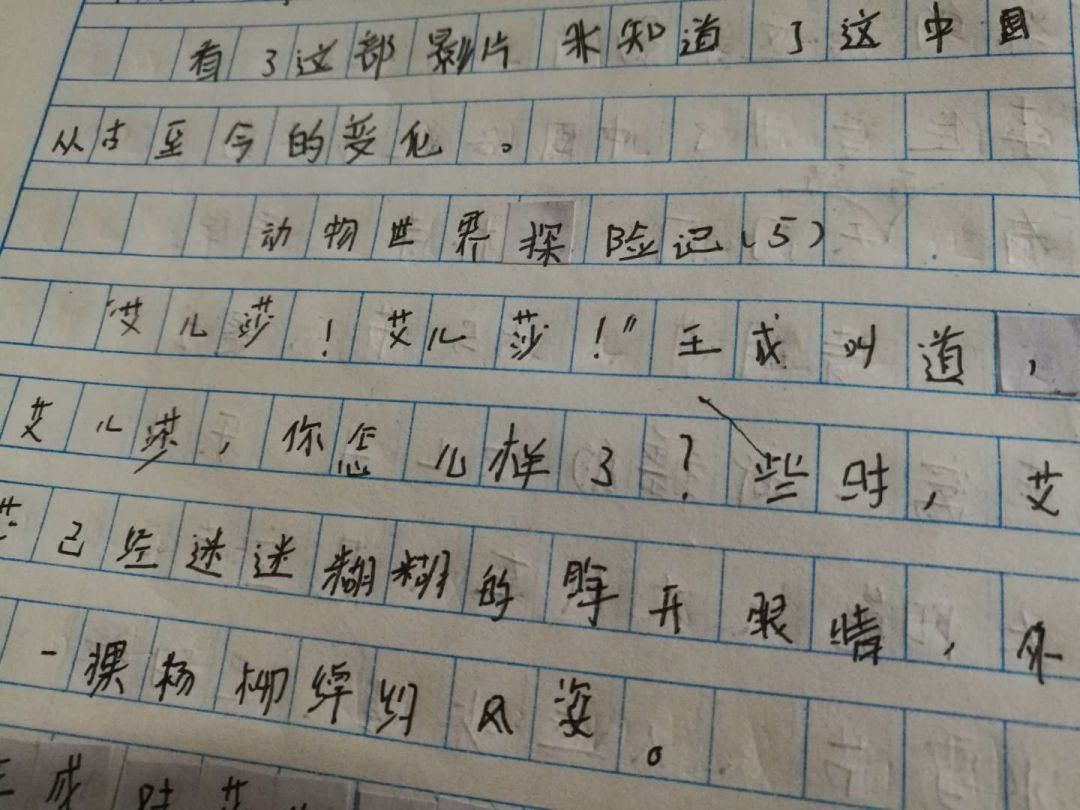 看了这部影片 米知道了这中国
从古至今的变化。
动物世界探险记(5)
“艾儿莎!艾儿莎!”王成叫道,
艾儿莎,你怎儿样了?些时,艾
莎已经迷迷糊糊的睁开眼睛,
一棵杨柳绰约风姿。
成时艾